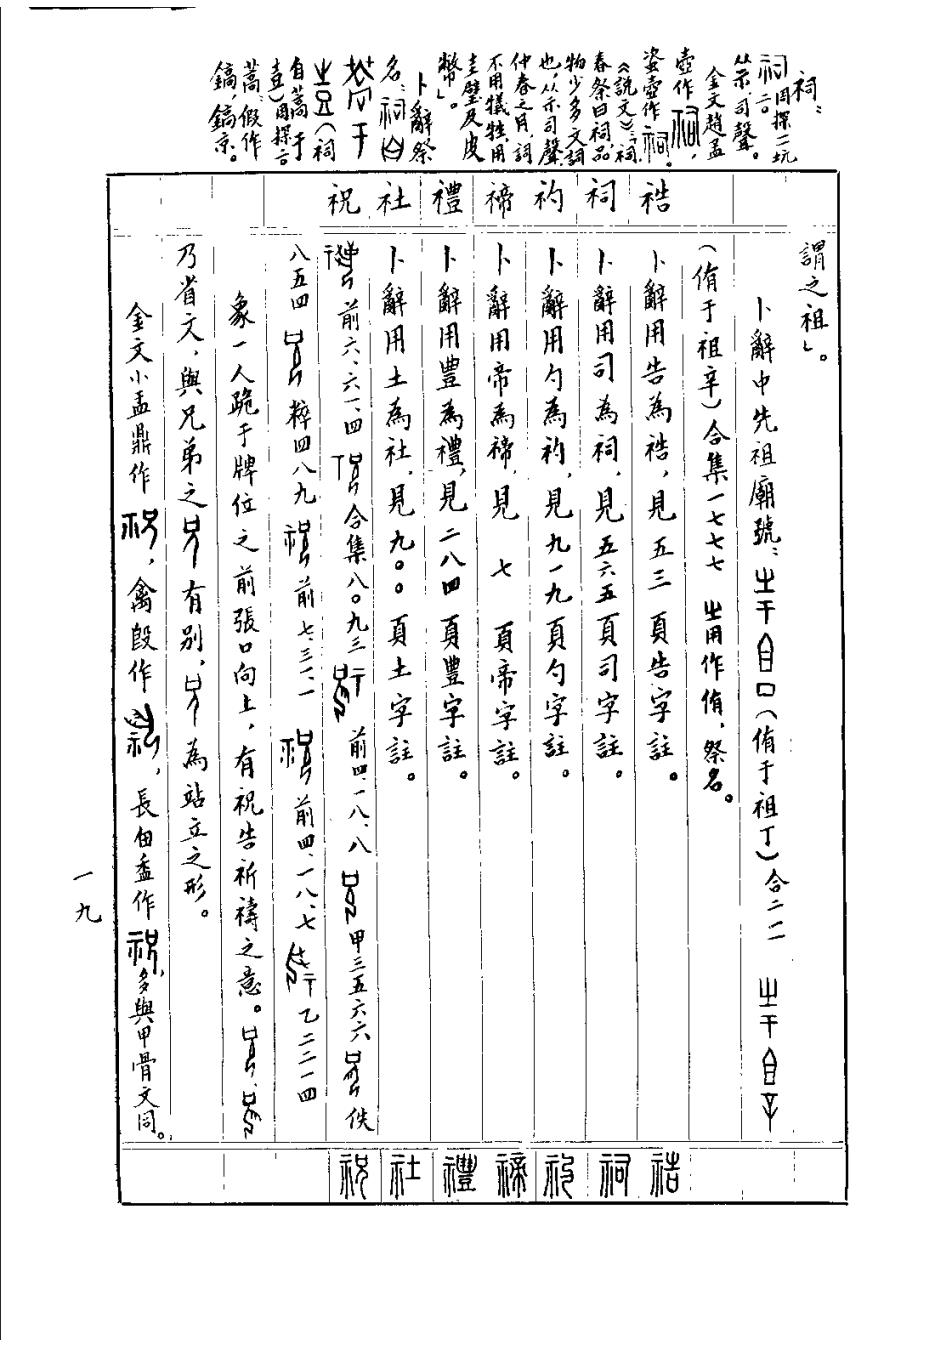 祠：
祠周探一坑
二。
从示，司聲。
金文趙孟
壺作，
盗壺作祠。
《說文》：「祠，
春祭曰祠，品
物少，多文詞
也，从示司聲。
仲春之月，詞
不用犧牲，用
圭璧及皮
幣」。
卜辭祭
名：祠自
蒿于
（祠
自蒿于
壴）周探二〇
蒿：假作
鎬，鎬京。
祰 祠 礿 禘 禮 社 祝
謂之祖」。
卜辭中先祖廟號：（侑于祖丁）合二一
（侑于祖辛）合集一七七七 㞢用作侑，祭名。
卜辭用告為祰，見五三頁告字註。
卜辭用司為祠，見五六五頁司字註。
卜辭用勺為礿，見九一九頁勺字註。
卜辭用帝為禘，見七頁帝字註。
卜辭用豐為禮，見二八四頁豐字註。
卜辭用土為社，見九〇〇頁土字註。
前六、一六、四 合集八〇九三 前四、一八、八 甲三五六六 佚
八五四 粹四八九 前七、三一、一 前四、一八、七 乙二二一四
象一人跪于牌位之前張口向上，有祝告祈禱之意。
乃省文，與兄弟之有別，為站立之形。
金文小盂鼎作，禽𣪘作，長甶盉作，多與甲骨文同。
一九
祰 祠 礿 禘 禮 社 祝